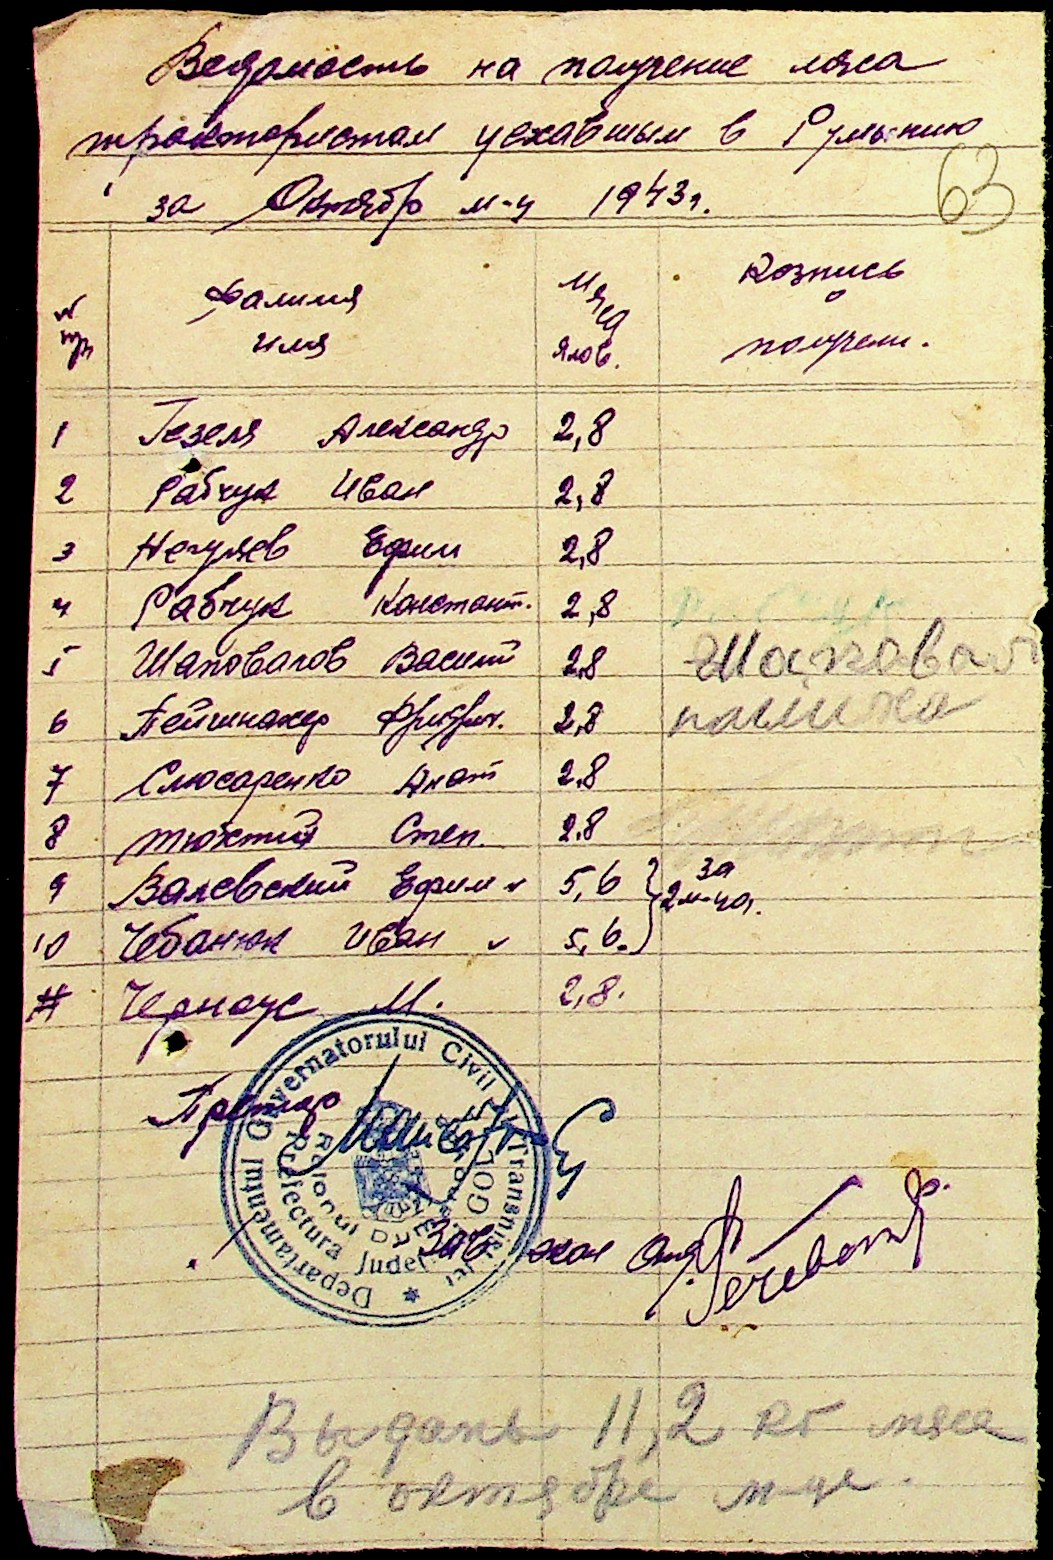 Ведомость на получение мяса
трактористам уехавшим в Румынию
за Октябр м-ц 1943 г.
63
№ п/п Фамилия имя Мяса ялов. Розпись о получени.
1 Гезеля Александр 2,8
2 Рабчук Иван 2,8
3 Негуляев Ефим 2,8
4 Рабчук Констант. 2,8
5 Шаповалов Василий 2,8 Шаповал
6 Фридрих. 2,8
7 Слюсаренко Анат 2,8
8 Тюхтий Степ. 2,8
9 Валевский Ефим 5,6 за
10 Чебанюк Иван 5,6. 2 м-ца.
11 Черноус М. 2,8.
Претор
Departamentul Guvernatorului Civil Transnistriei
Prefectura Județ GOLTA
Raionul
Зав
Выдань 11,2 кг мяса
в октябре м-це.